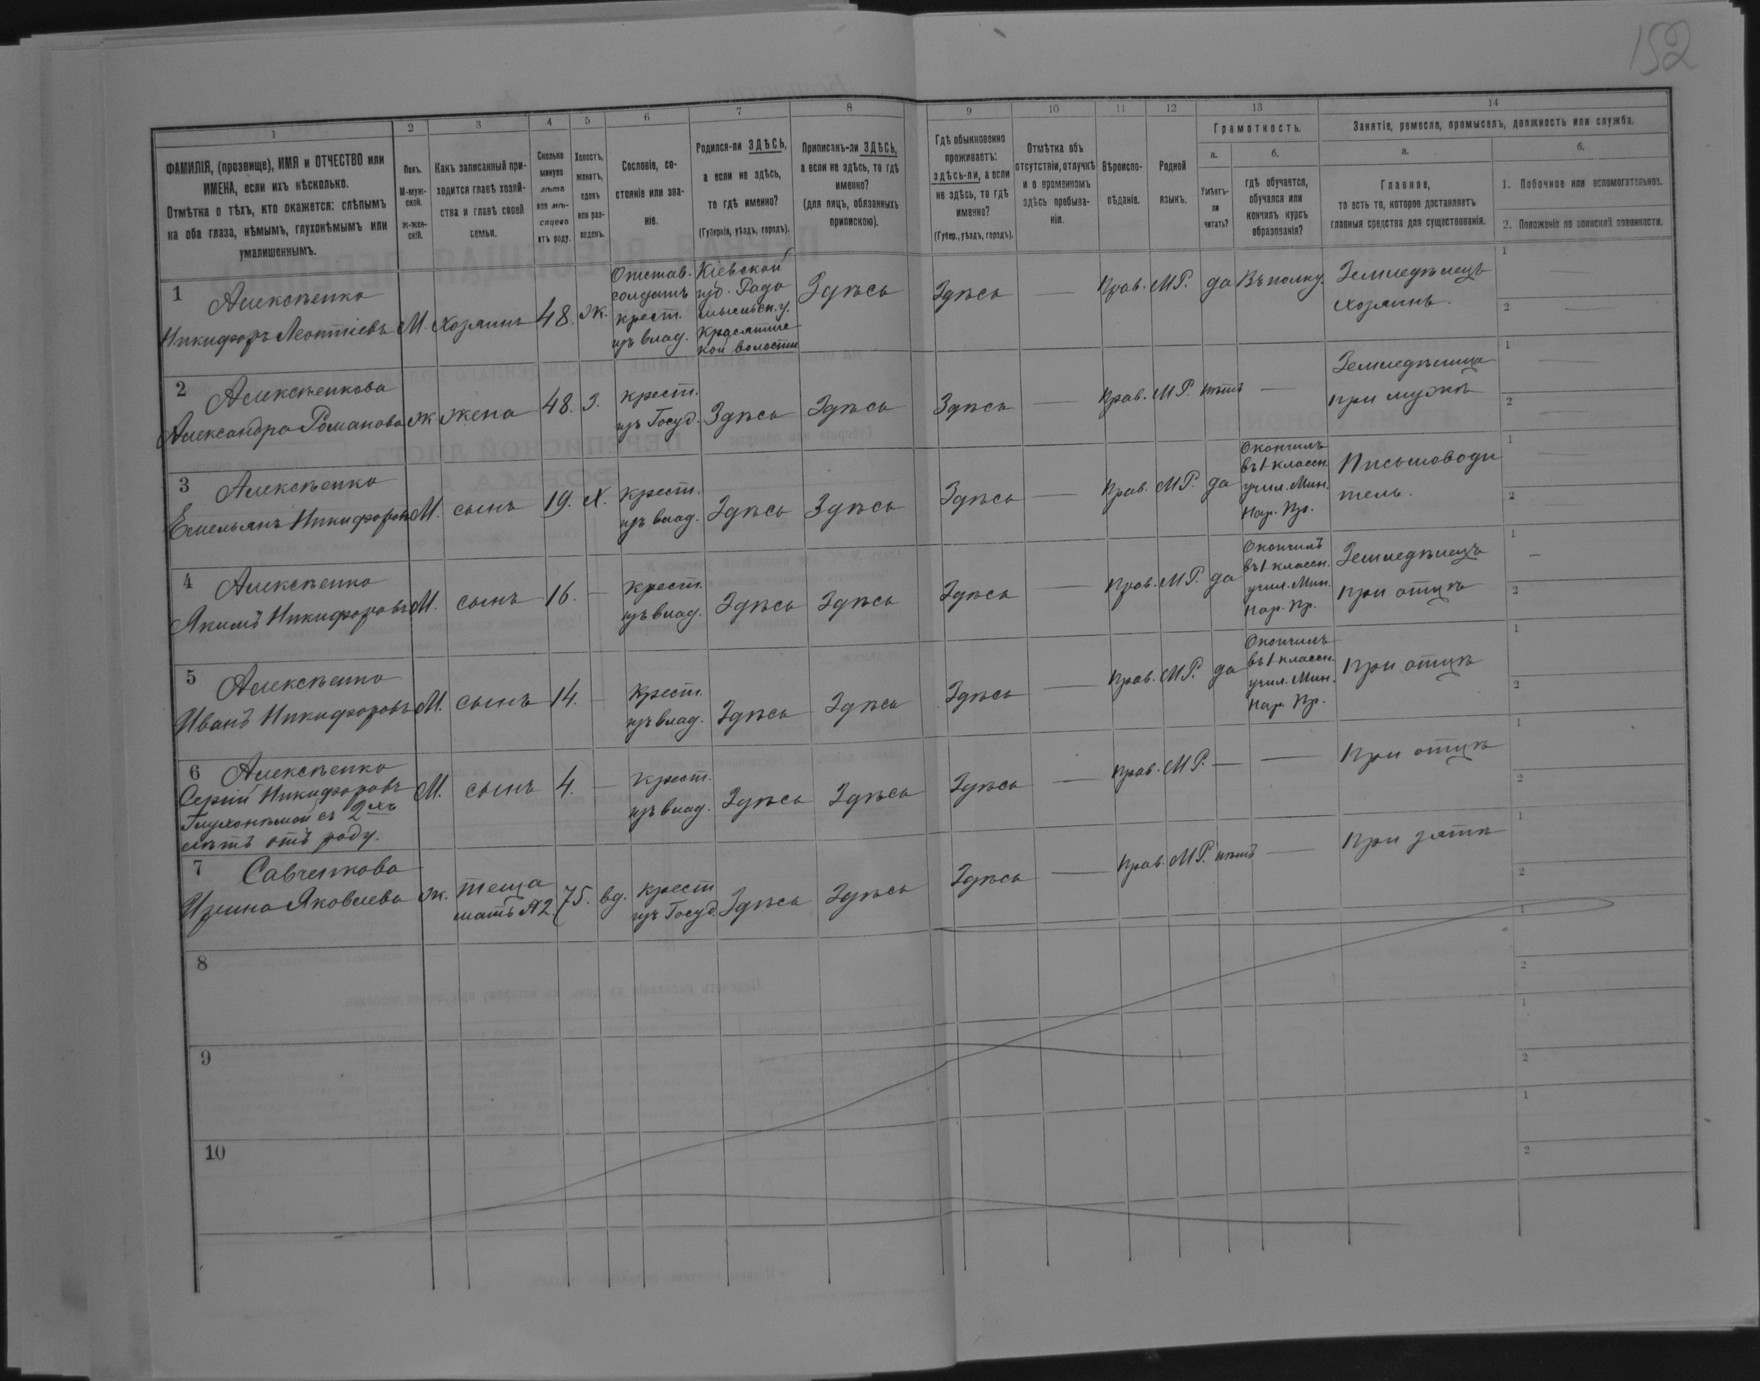 152
1 2 3 4 5 6 7 8 9 10 11 12 13 14
ФАМИЛІЯ, (прозвище), ИМЯ и ОТЧЕСТВО или
ИМЕНА, если ихъ нѣсколько.
Отмѣтка о тѣхъ, кто окажется: слѣпымъ
на оба глаза, нѣмымъ, глухонѣмымъ или
умалишеннымъ.
Полъ.
М-муж-
ской.
Ж-жен-
скій.
Какъ записанный при-
ходится главѣ хозяй-
ства и главѣ своей
семьи.
Сколько
минуло
лѣтъ
или мѣ-
сяцевъ
отъ роду.
Холостъ,
женатъ,
вдовъ
или раз-
веденъ.
Сословіе, со-
стояніе или зва-
ніе.
Родился-ли ЗДѢСЬ,
а если не здѣсь,
то гдѣ именно?
(Губернія, уѣздъ, городъ).
Приписанъ-ли ЗДѢСЬ,
а если не здѣсь, то гдѣ
именно?
(для лицъ, обязанныхъ
припискою).
Гдѣ обыкновенно
проживаетъ:
здѣсь-ли, а если
не здѣсь, то гдѣ
именно?
(Губер., уѣздъ, городъ).
Отмѣтка объ
отсутствіи, отлучкѣ
и о временномъ
здѣсь пребыва-
ніи.
Вѣроиспо-
вѣданіе.
Родной
языкъ.
Грамотность.
а.
Умѣетъ-
ли
читать?
б.
гдѣ обучается,
обучался или
кончилъ курсъ
образованія?
Занятіе, ремесло, промыселъ, должность или служба.
а.
Главное,
то есть то, которое доставляетъ
главныя средства для существованія.
б.
1. Побочное или вспомогательное.
2. Положеніе по воинской повинности.
1 Алексѣенко
Никифоръ Леонтіевъ М. хозяинъ 48. ж.
Отстав.
солдатъ
крест.
изъ влад.
Кіевской
губ. Радо
мысльск. у.
кой волости
Здѣсь Здѣсь — Прав. М.Р. да Въ полку.
Земледѣлецъ
хозяинъ.
1
2 —
2 Алексѣенкова
Александра Романова ж жена 48. з.
крест.
изъ Госуд.
Здѣсь Здѣсь Здѣсь — Прав. М.Р. нѣтъ —
Земледѣлица
при мужѣ
1 —
2 —
3 Алексѣенко
Емельянъ Никифоровъ М. сынъ 19. х.
крест.
изъ влад.
Здѣсь Здѣсь Здѣсь — Прав. М.Р. да
Окончилъ
въ 1 классн.
учил. Мин.
Нар. Пр.
Письмоводи
тель.
1 —
2 —
4 Алексѣенко
Якимъ Никифоровъ М. сынъ 16. —
крест.
изъ влад.
Здѣсь Здѣсь Здѣсь — Прав. М.Р. да
Окончилъ
въ 1 классн.
учил. Мин.
Нар. Пр.
Земледѣлецъ
при отцѣ
1 —
2
5 Алексѣенко
Иванъ Никифоровъ М. сынъ 14. —
крест.
изъ влад.
Здѣсь Здѣсь Здѣсь — Прав. М.Р. да
Окончилъ
въ 1 классн.
учил. Мин.
Нар. Пр.
при отцѣ
1
2
6 Алексѣенко
Сергій Никифоровъ
Глухонѣмой съ 2хъ
лѣтъ отъ роду.
М. сынъ 4. —
крест.
изъ влад.
Здѣсь Здѣсь Здѣсь — Прав. М.Р. — —
при отцѣ
1
2
7 Савченкова
Ирина Яковлева ж.
теща
мать №2
75. вд.
крест
изъ Госуд.
Здѣсь Здѣсь Здѣсь — Прав. М.Р. нѣтъ —
при зятѣ
1
2
8
1
2
9
1
2
10
1
2